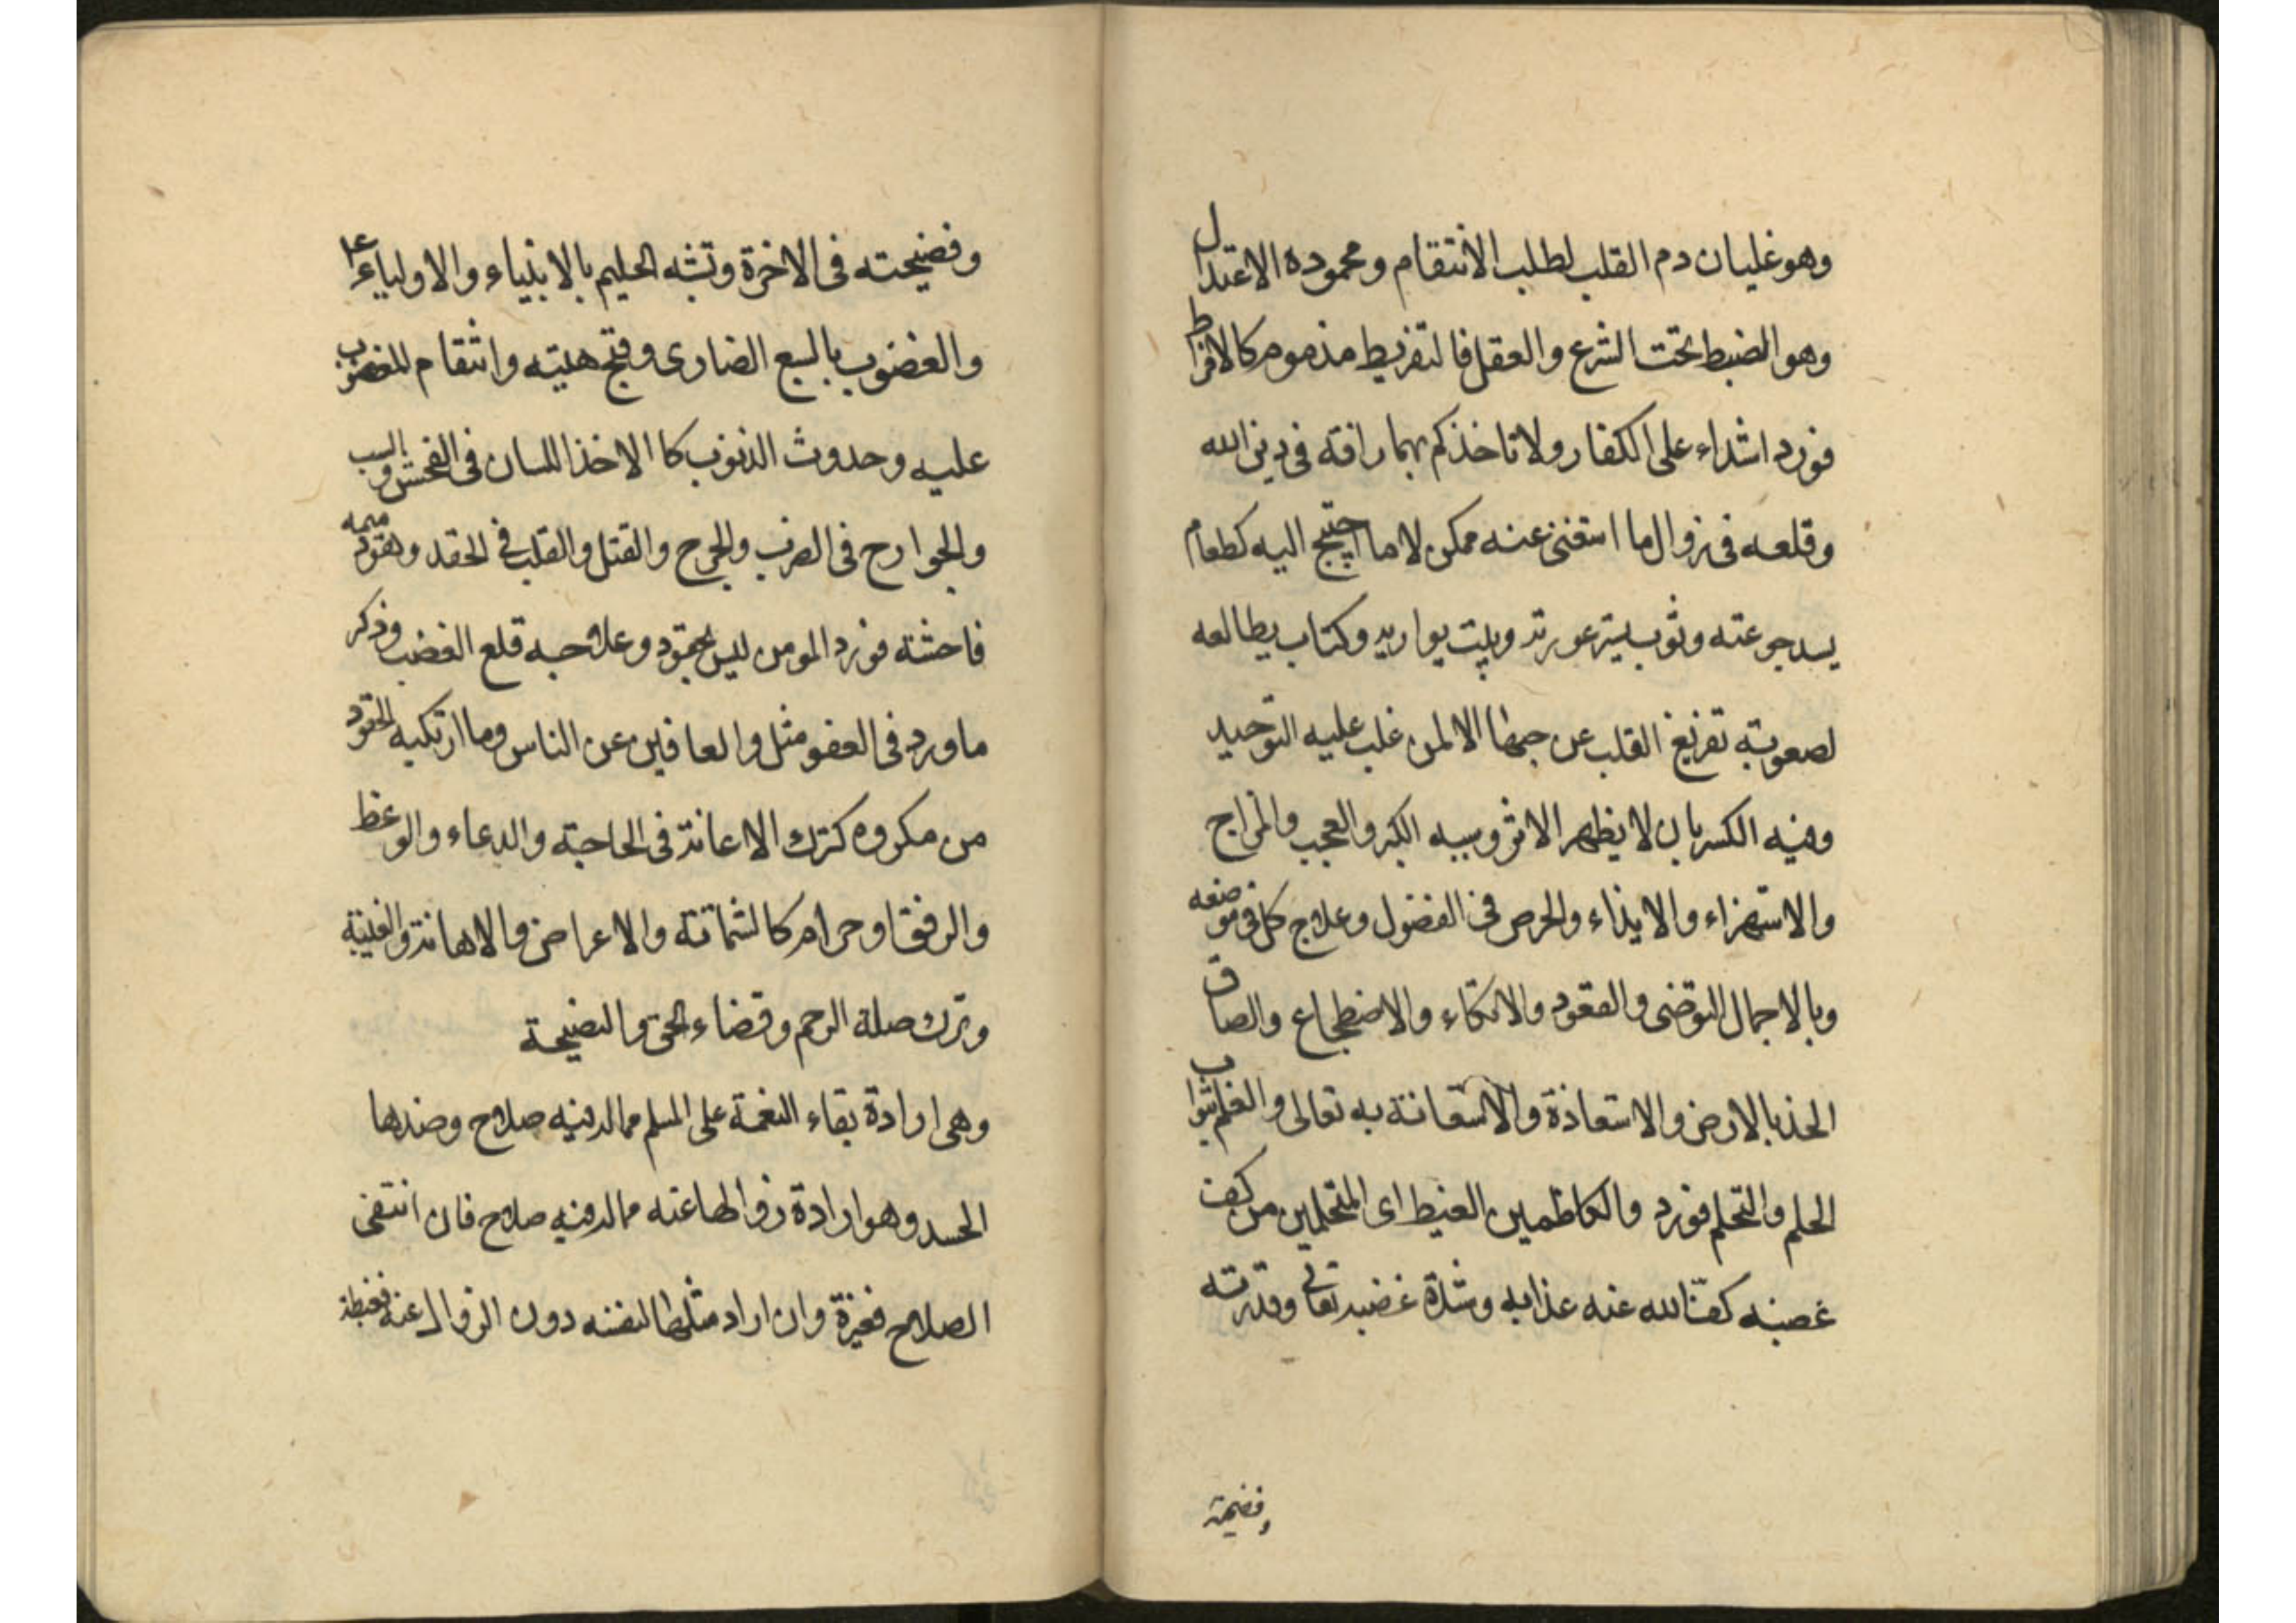 وهو غليان دم القلب لطلب الانتقام ومحموده الاعتدال
وهو الضبط تحت الشرع والعقل فالتفريط مذموم كالافراط
فورد اشداء على الكفار ولا تاخذكم بهما رافة فى دين الله
وقلعه فى زوال ما استغنى عنه ممكن لا ما احتيج اليه كطعام
يسد جوعته وثوب يستر عورته وبيت يواريه وكتاب يطالعه
لصعوبة تفريغ القلب عن حبها الا لمن غلب عليه التوحيد
وفيه الكسر بان لا يظهر الاثر وسببه الكبر والعجب والمزاج
والاستهزاء والايذاء والحرص فى الفضول وعلاج كل فى موضعه
وبالاجمال التوضى والقعود والاتكاء والاضطجاع والصاق
الخد بالارض والاستعاذة والاستعانة به تعالى والعلم بثواب
الحلم والتحلم فورد والكاظمين الغيظ اى المتحلمين من كف
غضبه كف الله عنه عذابه وشدة غضبه تعالى وقدرته
وفضيحته
وفضيحته فى الاخرة وتشبه الحليم بالانبياء والاولياء
والغضوب بالسبع الضارى وقبح هيئته وانتقام المغضوب
عليه وحدوث الذنوب كالاخذ اللسان فى الفحش والسب
والجوارح فى الضرب والجرح والقتل والقلب فى الحقد وهو ذميمه
فاحشة فورد المومن ليس بحقود وعلاجه قلع الغضب وذكر
ما ورد فى العفو مثل والعافين عن الناس وما ارتكبه الحقود
من مكروه كترك الاعانة فى الحاجة والدعاء والوعظ
والرفق او حرام كالشماتة والاعراض والاهانة والغيبة
وترك صلة الرحم وقضاء الحق والنصيحة
وهى ارادة بقاء النعمة على المسلم مما له فيه صلاح وضدها
الحسد وهو ارادة زوالها عنه مما له فيه صلاح فان انتفى
الصلاح فغيرة وان اراد مثلها لنفسه دون الزوال عنه فغبطة